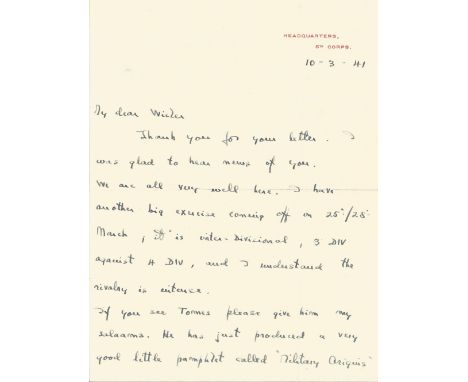 HEADQUARTERS,
5TH CORPS.
10 - 3 - 41
My dear
Thank you for your letter. I
was glad to hear news of you.
We are all very well here. I have
another big exercise coming off on 25/28
March; it is inter-Divisional, 3 DIV
against 4 DIV, and I understand the
rivalry is intense.
If you see Tomes please give him my
salaams. He has just produced a very
good little pamphlet called "Military Origins"